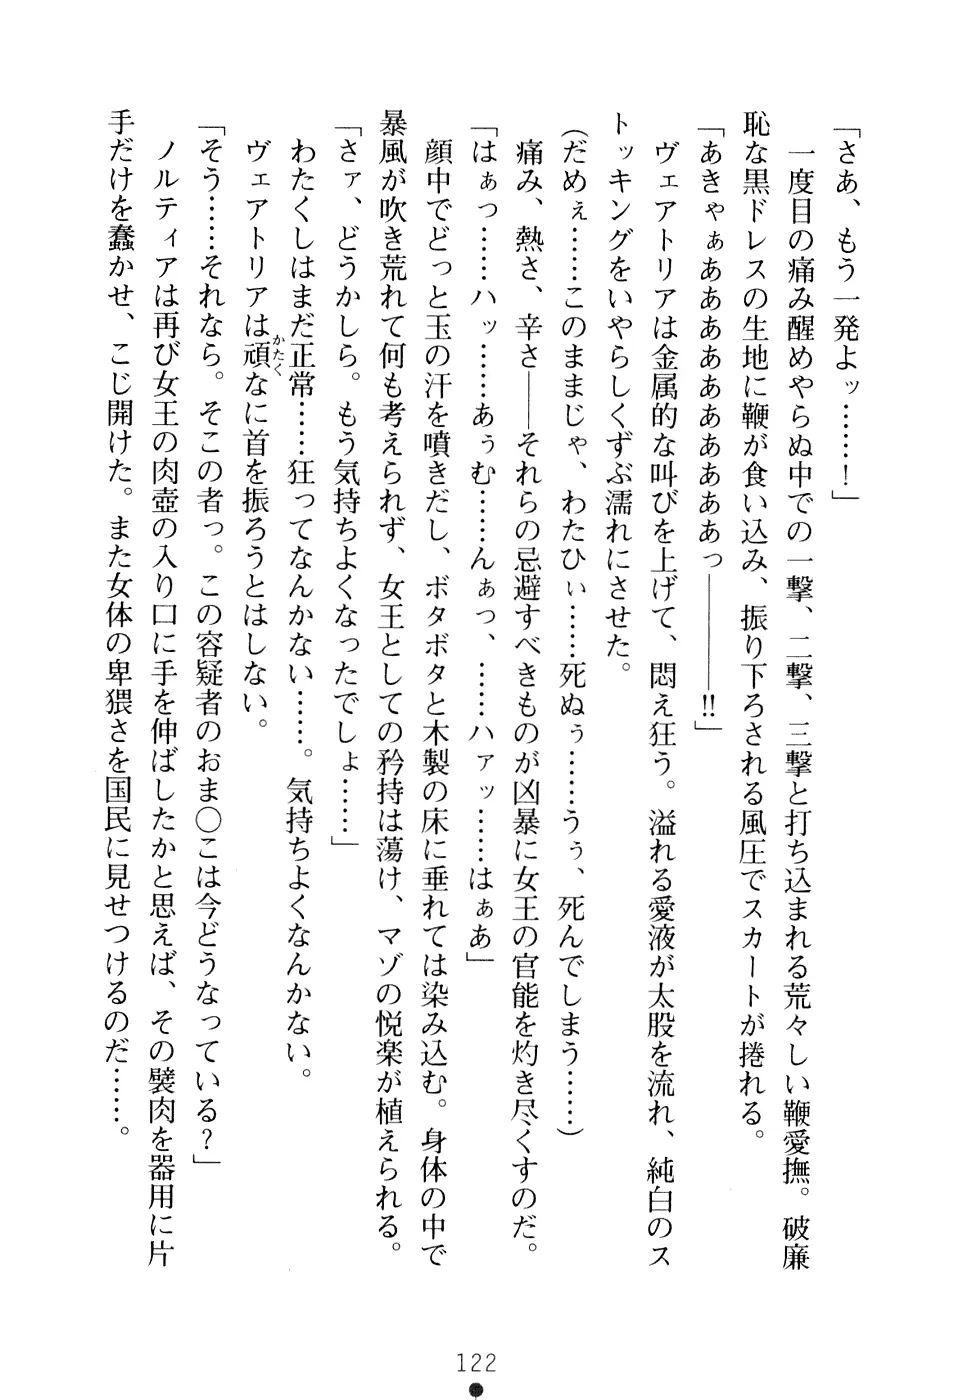 「さあ、もう一発よッ……！」
　一度目の痛み醒めやらぬ中での一撃、二撃、三撃と打ち込まれる荒々しい鞭愛撫。破廉
恥な黒ドレスの生地に鞭が食い込み、振り下ろされる風圧でスカートが捲れる。
「あきゃぁああああああああああっ――――!!」
　ヴェアトリアは金属的な叫びを上げて、悶え狂う。溢れる愛液が太股を流れ、純白のス
トッキングをいやらしくずぶ濡れにさせた。
（だめぇ……このままじゃ、わたひぃ……死ぬぅ……うぅ、死んでしまう……）
　痛み、熱さ、辛さ――それらの忌避すべきものが凶暴に女王の官能を灼き尽くすのだ。
「はぁっ……ハッ……あぅむ……んぁっ、……ハァッ……はぁあ」
　顔中でどっと玉の汗を噴きだし、ボタボタと木製の床に垂れては染み込む。身体の中で
暴風が吹き荒れて何も考えられず、女王としての矜持は蕩け、マゾの悦楽が植えられる。
「さァ、どうかしら。もう気持ちよくなったでしょ……」
　わたくしはまだ正常……狂ってなんかない……。気持ちよくなんかない。
　ヴェアトリアは頑なに首を振ろうとはしない。
「そう……それなら。そこの者っ。この容疑者のおま〇こは今どうなっている？」
　ノルティアは再び女王の肉壺の入り口に手を伸ばしたかと思えば、その襞肉を器用に片
手だけを蠢かせ、こじ開けた。また女体の卑猥さを国民に見せつけるのだ……。
かたく
122